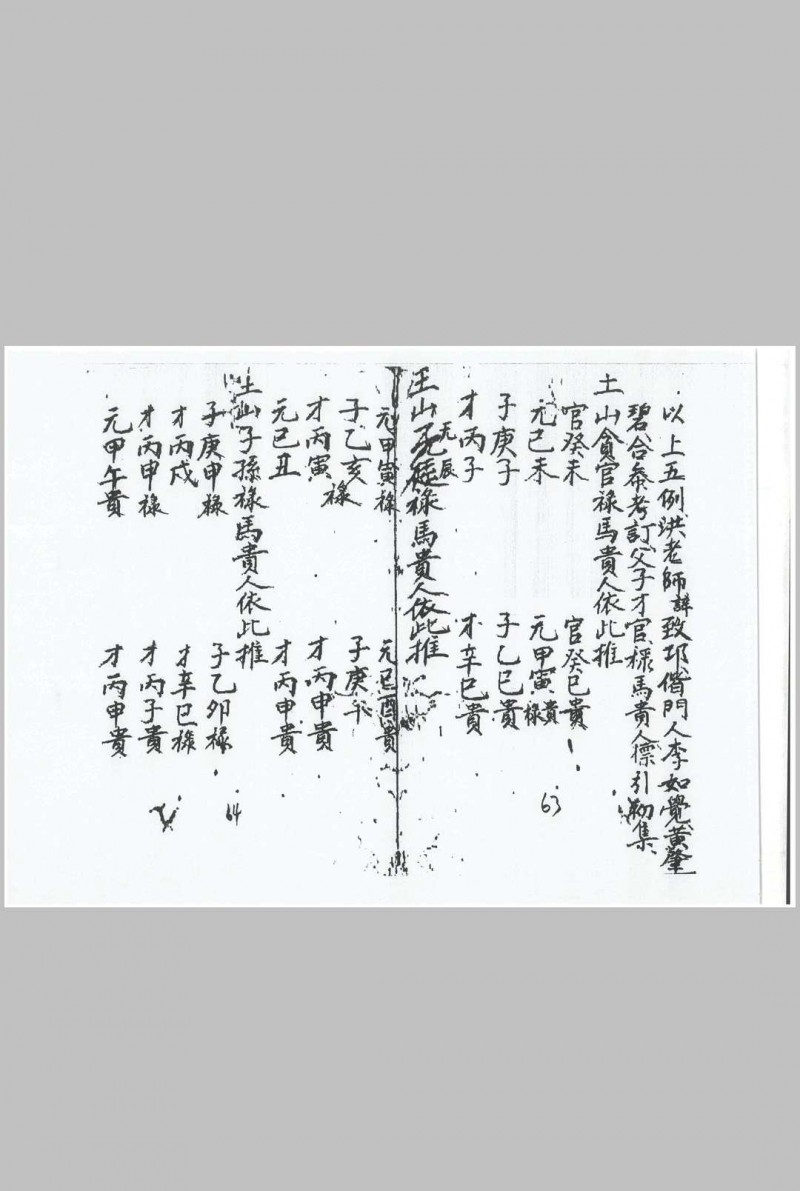 以上五例洪老師諱致邛偕門人李如覺黃肇
碧合參考訂父子才官祿馬貴人標引
土山貪官祿馬貴人依此推
官癸未 官癸巳貴
元己未 元甲寅貴祿
子庚子 子乙巳貴
才丙子 才辛巳貴
63
土山元辰祿馬貴人依此推
元甲寅祿 元己酉貴
子乙亥祿 子庚午
才丙寅 才丙申貴
元己丑 才丙申貴
土山子孫祿馬貴人依此推
子庚申祿 子乙卯祿
才丙戌 才辛巳祿
才丙申祿 才丙子貴
元甲午貴 才丙申貴
64